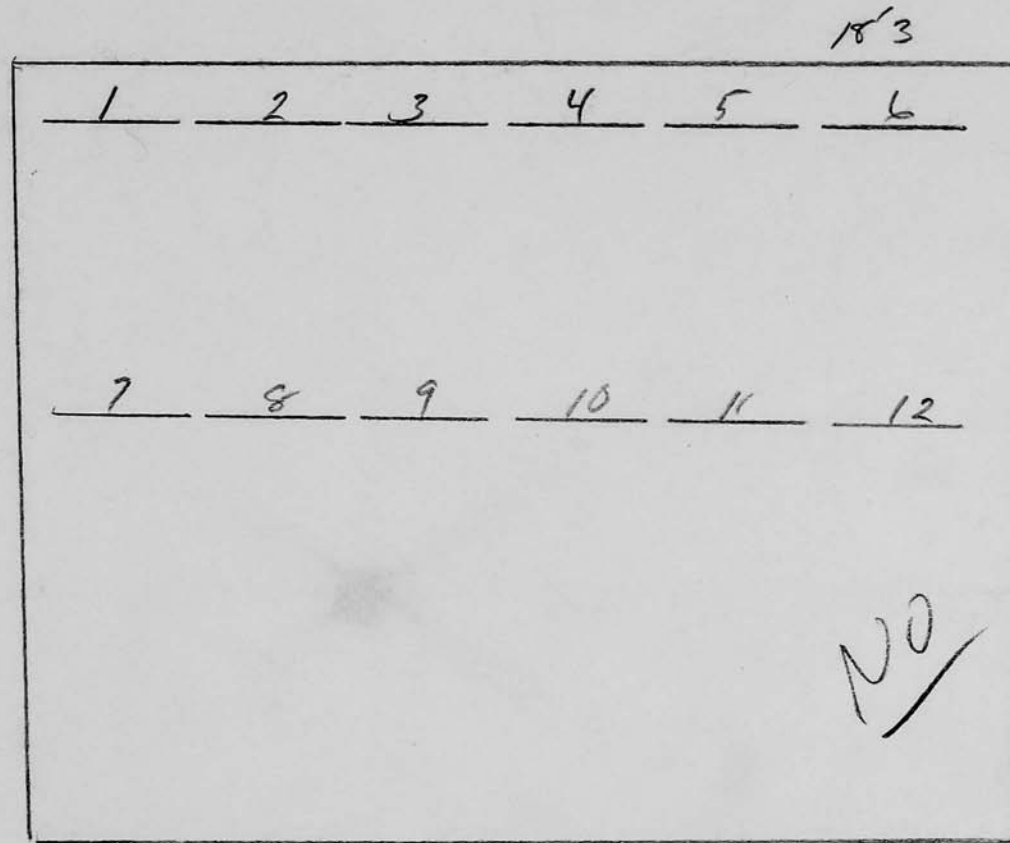 18'3
1 2 3 4 5 6
7 8 9 10 11 12
NO